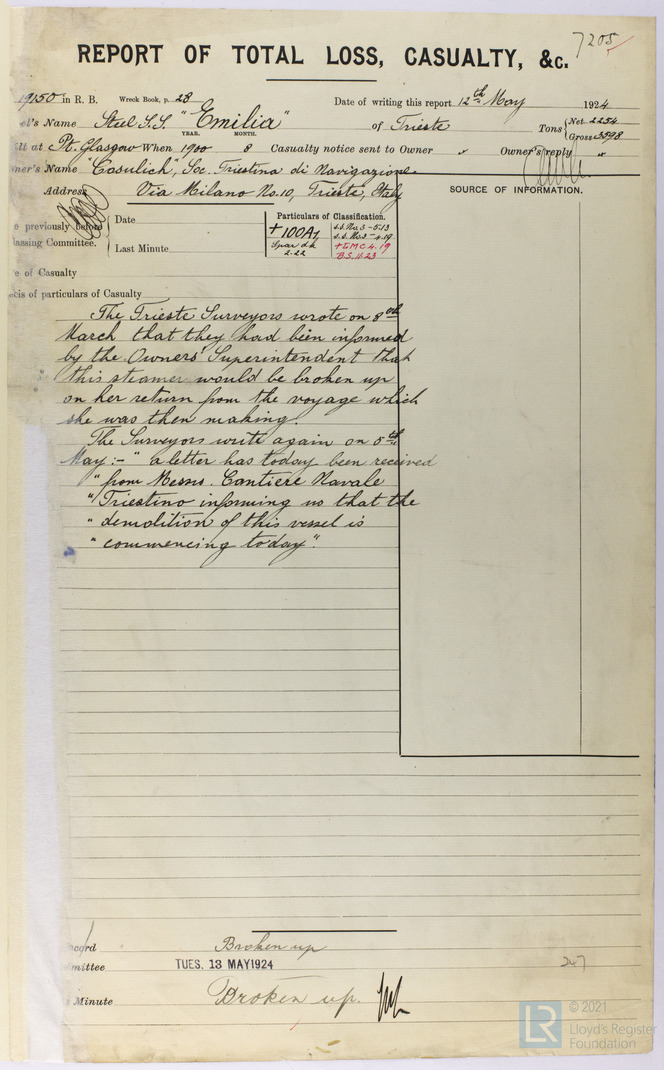 7205
REPORT OF TOTAL LOSS, CASUALTY, &c.
19150 in R. B. Wreck Book, p. 28 Date of writing this report 12th May 1924
el's Name Steel S.S. "Emilia" of Trieste Tons { Net 2254
Gross 3398
YEAR. MONTH.
lt at Pt. Glasgow When 1900 8 Casualty notice sent to Owner " Owner's reply "
ner's Name "Cosulich", Soc. Triestina di Navigazione.
Address Via Milano No. 10, Trieste, Italy
SOURCE OF INFORMATION.
e previously before
lassing Committee.
Date
Last Minute
Particulars of Classification.
+100A1
Spar dk
2.22
S.S. No. 3 - 5.13
S.S. No. 3 - 4.19
+LMC 4.19
B.S. 11.23
e of Casualty
cis of particulars of Casualty
The Trieste Surveyors wrote on 8th
March that they had been informed
by the Owners' Superintendent that
this steamer would be broken up
on her return from the voyage which
she was then making.
The Surveyors write again on 5th
May:- "a letter has today been received
"from Messrs. Cantiere Navale
"Triestino informing us that the
"demolition of this vessel is
"commencing today".
cord Broken up
mittee TUES. 13 MAY 1924
247
Minute Broken up.
LR © 2021
Lloyd's Register
Foundation